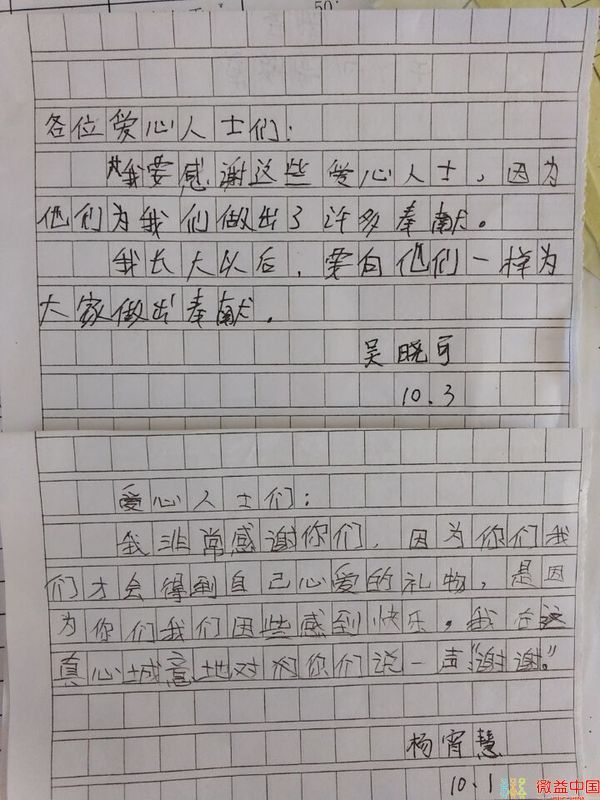 50
各位爱心人士们:
我要感谢这些爱心人士,因为
他们为我们做出了许多奉献。
我长大以后,要向他们一样为
大家做出奉献.
吴晓可
10.3
爱心人士们:
我非常感谢你们,因为你们我
们才会得到自己心爱的礼物,是因
为你们我们因些感到快乐。我在这
真心城意地对你们说一声"谢谢."
杨宵慧
10.1
微益中国